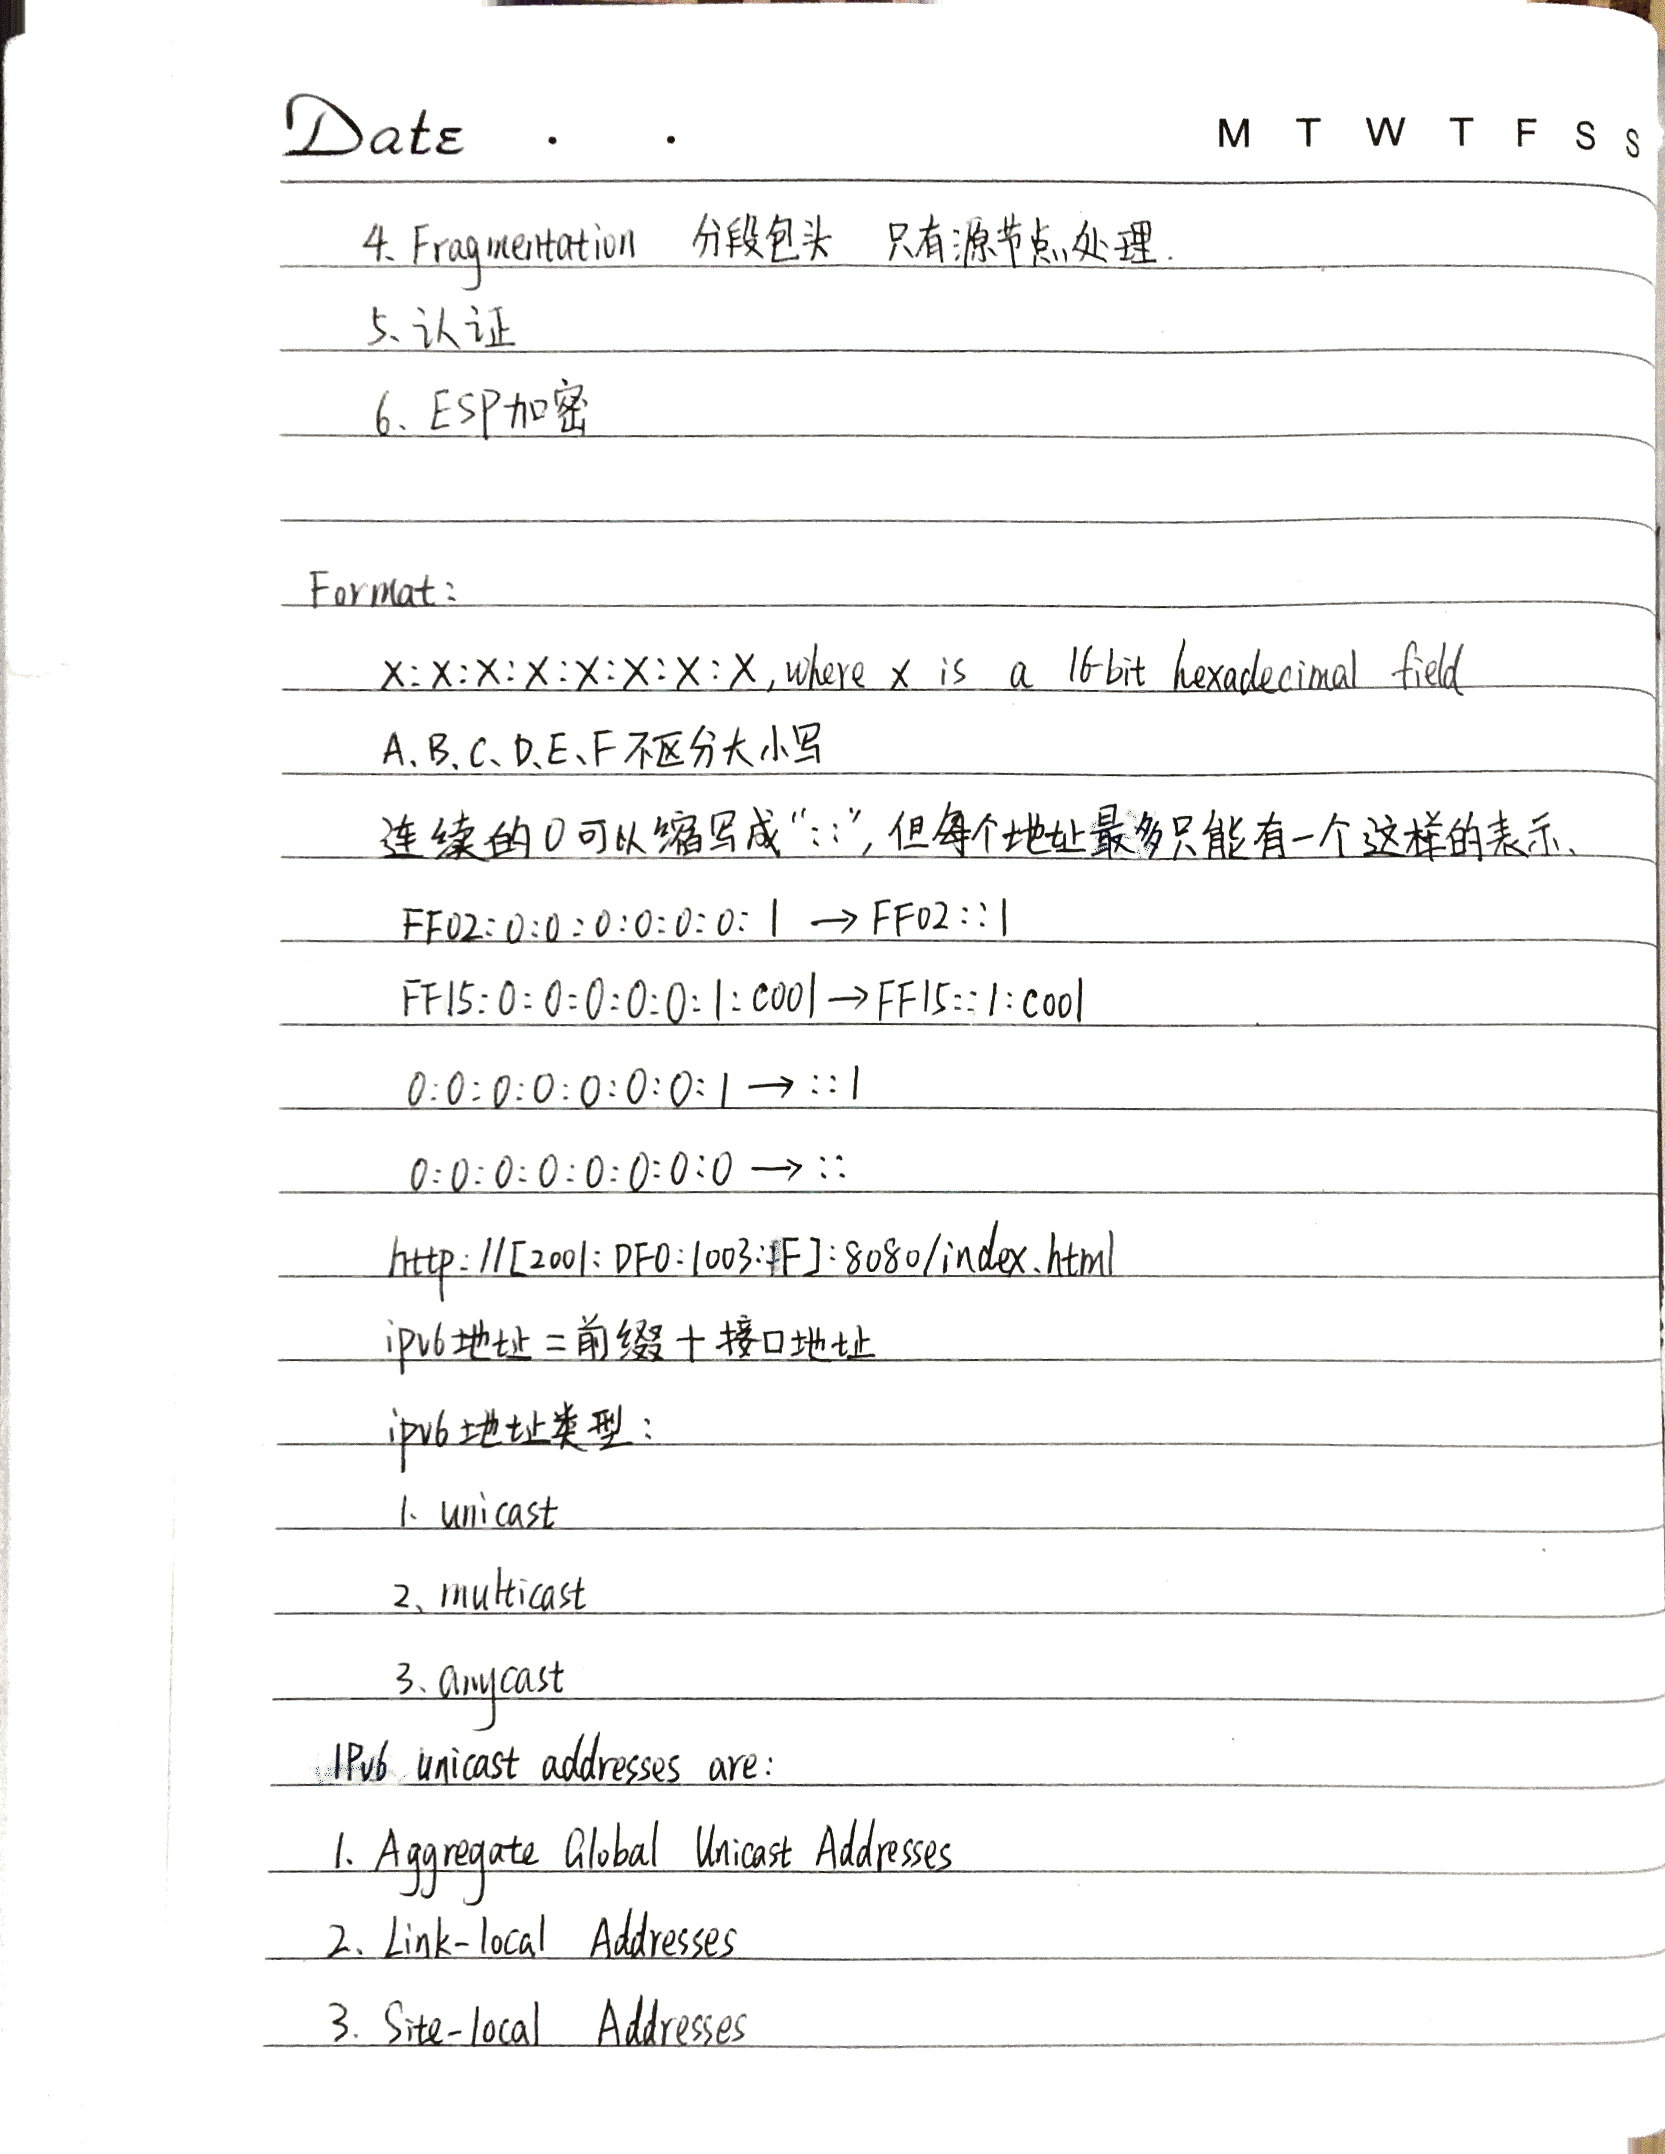 Date . . M T W T F S S
4. Fragmentation 分段包头 只有源节点处理.
5、认证
6、ESP加密
Format:
X:X:X:X:X:X:X:X, where x is a 16-bit hexadecimal field
A、B、C、D、E、F不区分大小写
连续的0可以缩写成"::",但每个地址最多只能有一个这样的表示、
FF02:0:0:0:0:0:0:1 → FF02::1
FF15:0:0:0:0:0:1:c001 → FF15::1:c001
0:0:0:0:0:0:0:1 → ::1
0:0:0:0:0:0:0:0 → ::
http://[2001:DF0:1003::F]:8080/index.html
ipv6地址=前缀+接口地址
ipv6地址类型:
1. unicast
2、multicast
3、anycast
IPv6 unicast addresses are:
1. Aggregate Global Unicast Addresses
2. Link-local Addresses
3. Site-local Addresses